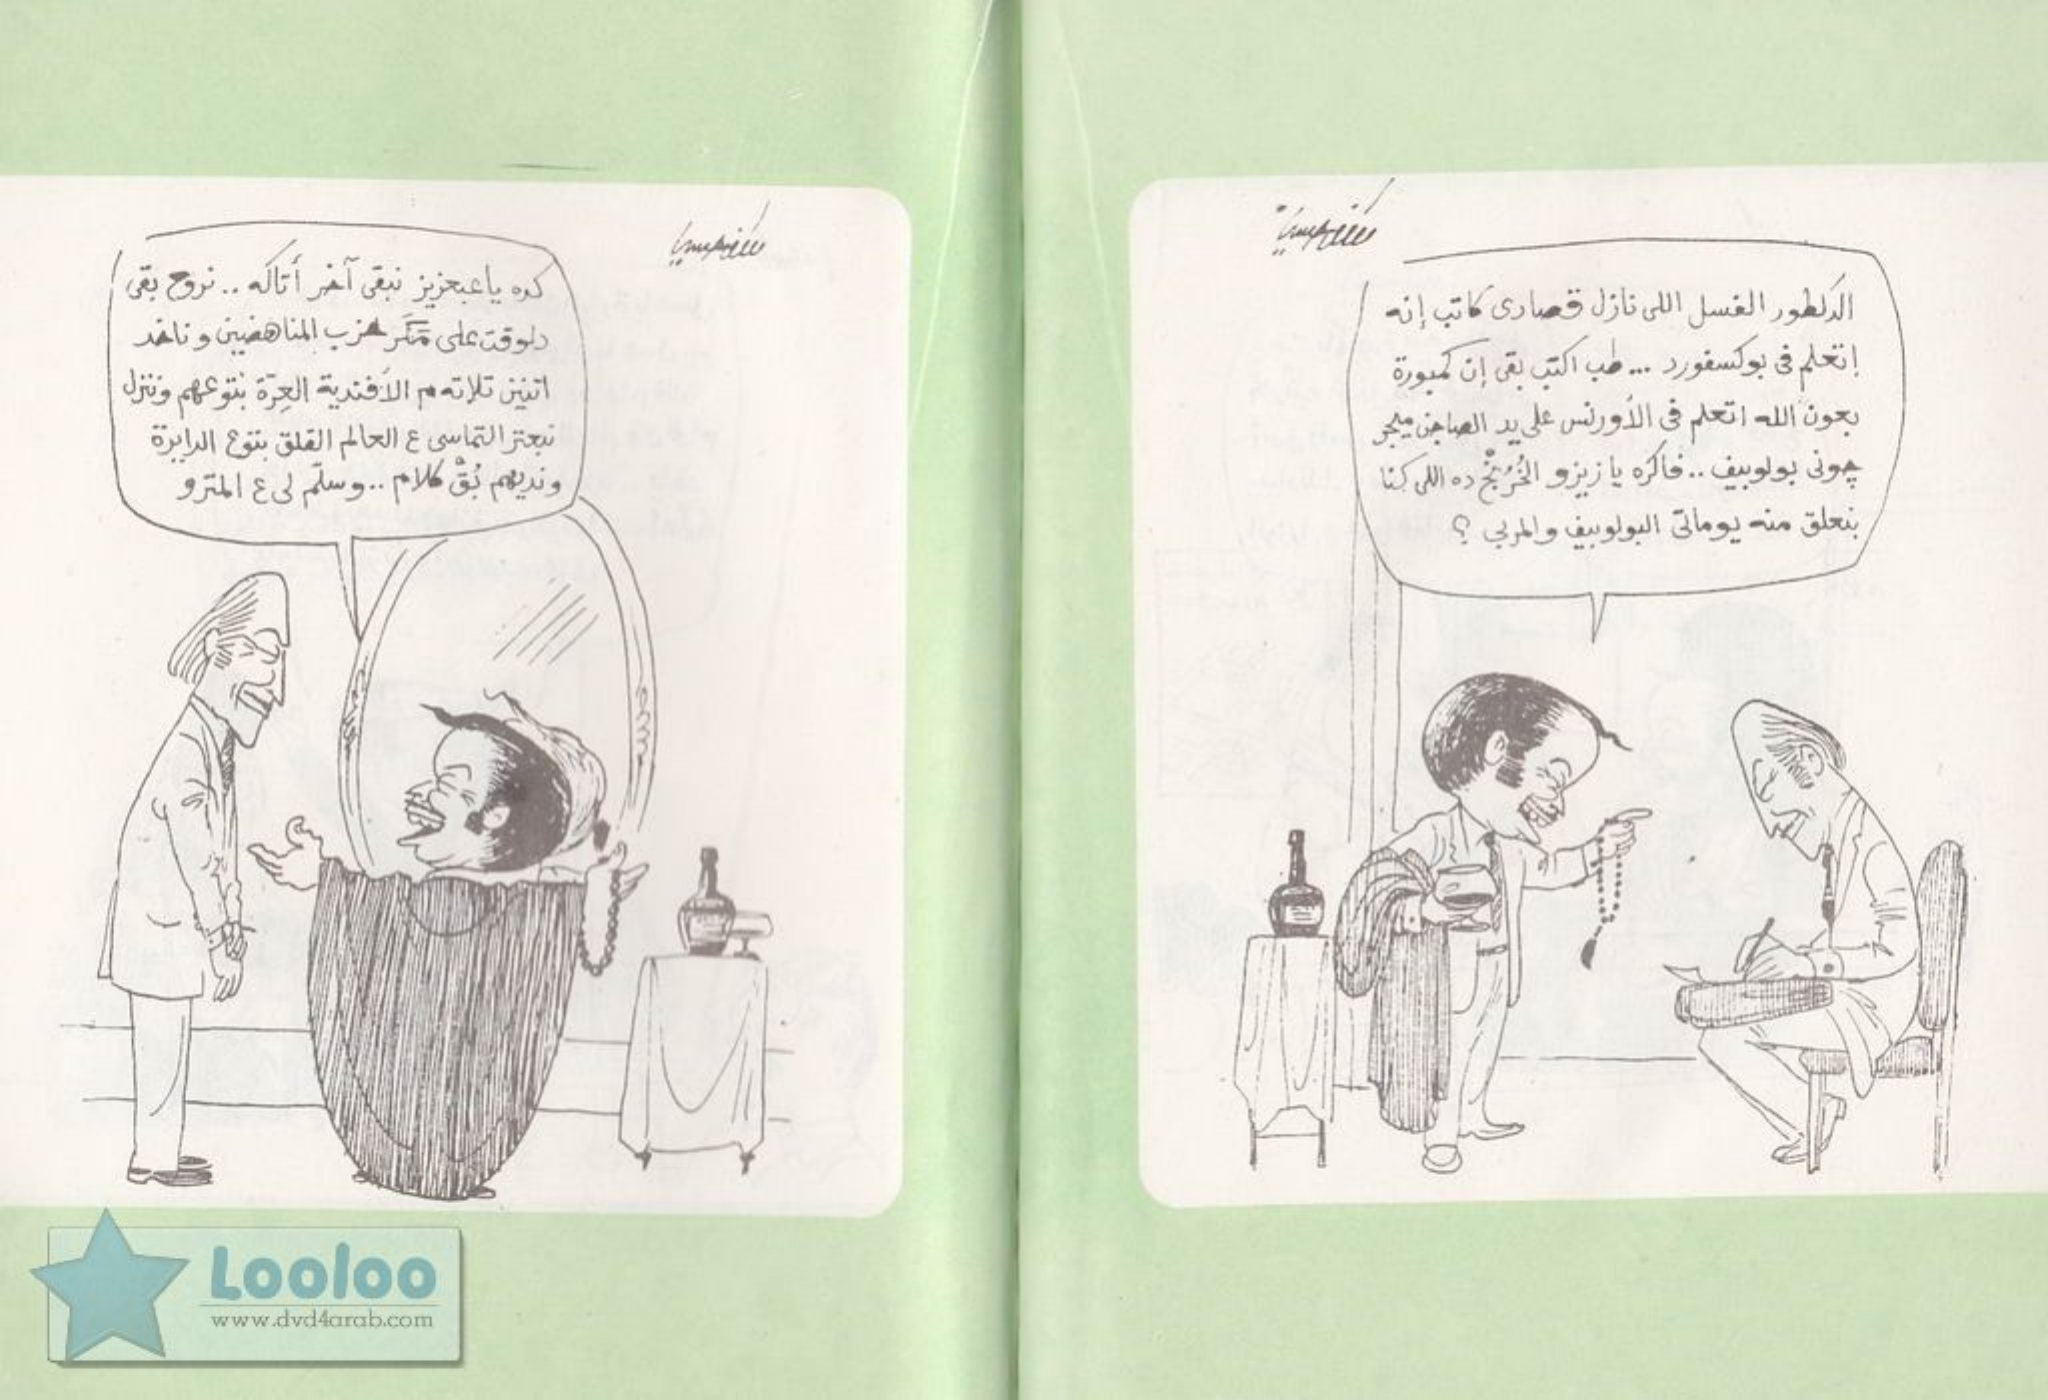 الدلطور الفسل اللى نازل قصادى كاتب إنه
إتعلم فى بوكسفورد ... طب اكتب بقى إن كمبورة
بعون الله اتعلم فى الأورنس على يد الصاجن ميجر
چونى بولوبيف .. فاكره يا زيزو الخُرُنْج ده اللى كنا
بنعلق منه يوماتى البولوبيف والمربي ؟
كده يا عبعزيز نبقى آخر أتاكه .. نروح بقى
دلوقت على مَكَر حزب المناهضين وناخد
اتنين تلاته م الأفندية العِرّة بتوعهم وننزل
نبعتر التماسى ع العالم القلق بتوع الدايرة
ونديهم بُقْ كلام .. وسلّم لى ع المترو
Looloo
www.dvd4arab.com